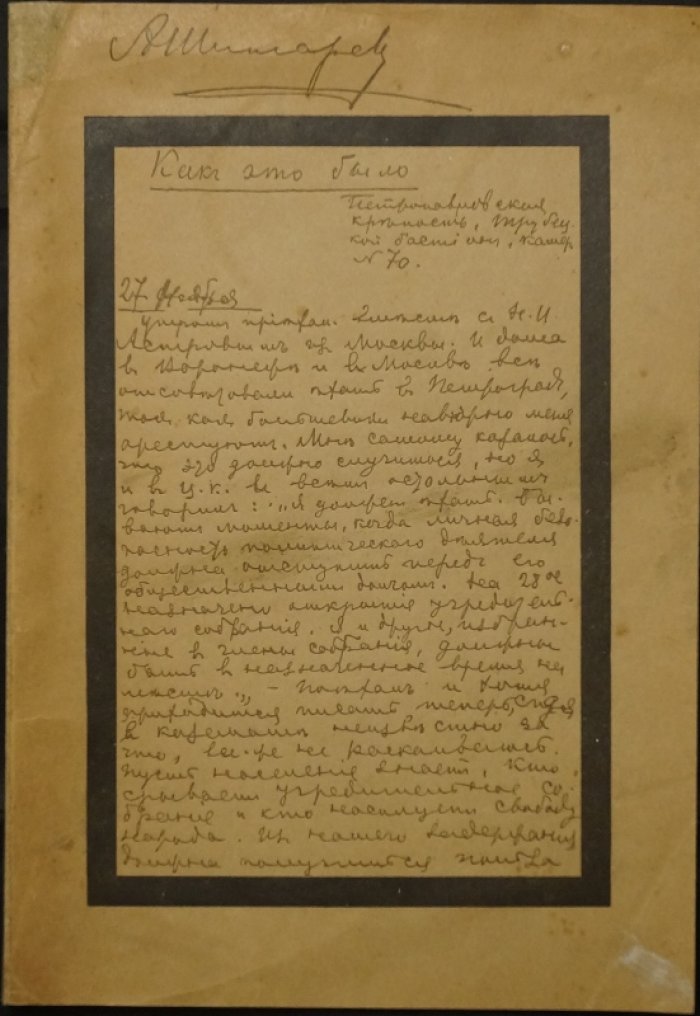 АШингарев
Какъ это было
Петропавловская
крѣпость, Трубец
кой бастіонъ, камер
N 70.
27 Ноября
Утромъ пріѣхал. вмѣстѣ с Н.И
Астровымъ из Москвы. И дома
в Воронежѣ и в Москвѣ всѣ
отсовѣтовали ѣхать в Петроград,
так как большевики навѣрно меня
арестуютъ. Мнѣ самому казалось,
что это должно случиться, но я
и в Ц.К. и всѣмъ остальнымъ
говорил: „я должен ѣхать. Бы-
вают моменты, когда личная безо-
пасность политическаго дѣятеля
должна отступить передъ его
общественнымъ долгом. На 28ое
назначено открытіе Учредитель-
наго собранія. Я и другіе, избран-
ные в члены собранія, должны
быть в назначенное время на
мѣстѣ". – Поѣхалъ и хотя
приходится писать теперь, сидя
в казематѣ неизвѣстно за
что, все-же не раскаиваюсь.
Пусть населеніе знает, кто
срывает учредительное со-
браніе и кто насилует свободу
народа. Из нашего задержанія
должна получиться польза